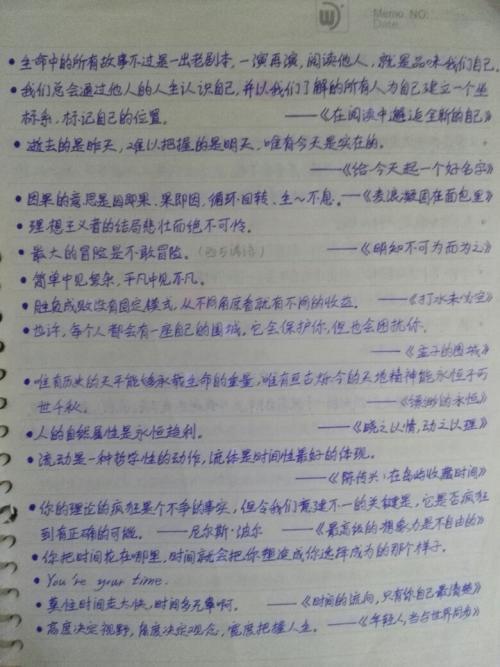 Memo NO:
Date
• 生命中的所有故事不过是一出老剧本,一演再演,阅读他人,就是品味我们自己。
• 我们总会通过他人的人生认识自己,并以我们了解的所有人为自己建立一个坐
标系,标记自己的位置。 ——《在阅读中邂逅全新的自己》
• 逝去的是昨天,难以把握的是明天,唯有今天是实在的。
——《给今天起一个好名字》
• 因果的意思是因即果、果即因,循环回转、生生不息。——《麦浪凝固在面包里》
• 理想主义者的结局悲壮而绝不可怜。
• 最大的冒险是不敢冒险。 ——《明知不可为而为之》
• 简单中见复杂,平凡中见不凡。
• 胜负成败没有固定模式,从不同角度看就有不同的收益。 ——《打水未必空》
• 也许,每个人都会有一座自己的围城。它会保护你,但也会困扰你。
——《孟子的围城》
• 唯有历史的天平能够承载生命的重量,唯有亘古烁今的天地精神能永恒于万
世千秋。 ——《缥缈的永恒》
• 人的自然属性是永恒趋利。 ——《晓之以情,动之以理》
• 流动是一种哲学性的动作,流体是时间性最好的体现。
——《陈传兴:在岛屿收藏时间》
• 你的理论的疯狂是个不争的事实,但令我们意见不一的关键是,它是否疯狂
到有正确的可能。 ——尼尔斯·波尔 ——《最高级的想象力是不自由的》
• 你把时间花在哪里,时间就会把你塑造成你选择成为的那个样子。
• You're your time.
• 莫怪时间走太快,时间多无辜啊。 ——《时间的流向,只有你自己最清楚》
• 高度决定视野,角度决定观念,宽度把握人生。 ——《年轻人,当与世界同步》